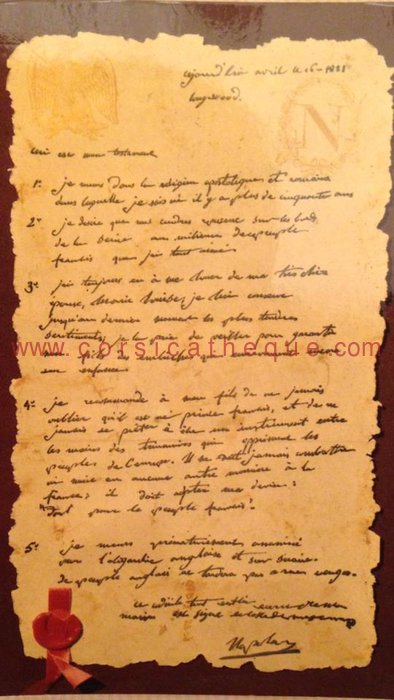 avril le 16 - 1821
Longwood.
N
Ceci est mon testament
1° je meurs dans la religion apostolique et romaine
dans laquelle je suis né il y a plus de cinquante ans
2° je desire que mes cendres reposent sur les bords
de la Seine au milieu de ce peuple
français que j'ai tant aimé
3° j'ai toujours eu à me louer de ma très chère
épouse, Marie Louise; je lui conserve
jusqu'au dernier moment les plus tendres
sentiments, je la prie de veiller pour garantir
www.corsicatheque.com
mon fils
son enfance.
4° je recommande à mon fils de ne jamais
oublier qu'il est né prince français, et de ne
jamais se prêter à être un instrument entre
les mains des triumvirs qui oppriment les
peuples de l'Europe. Il ne doit jamais combattre
ni nuire en aucune autre manière à la
france; il doit adopter ma devise:
Tout pour le peuple français!
5° je meurs prématurément assassiné
par l'oligarchie anglaise et son
le peuple anglais ne tardera pas à me venger.
ce
est signé